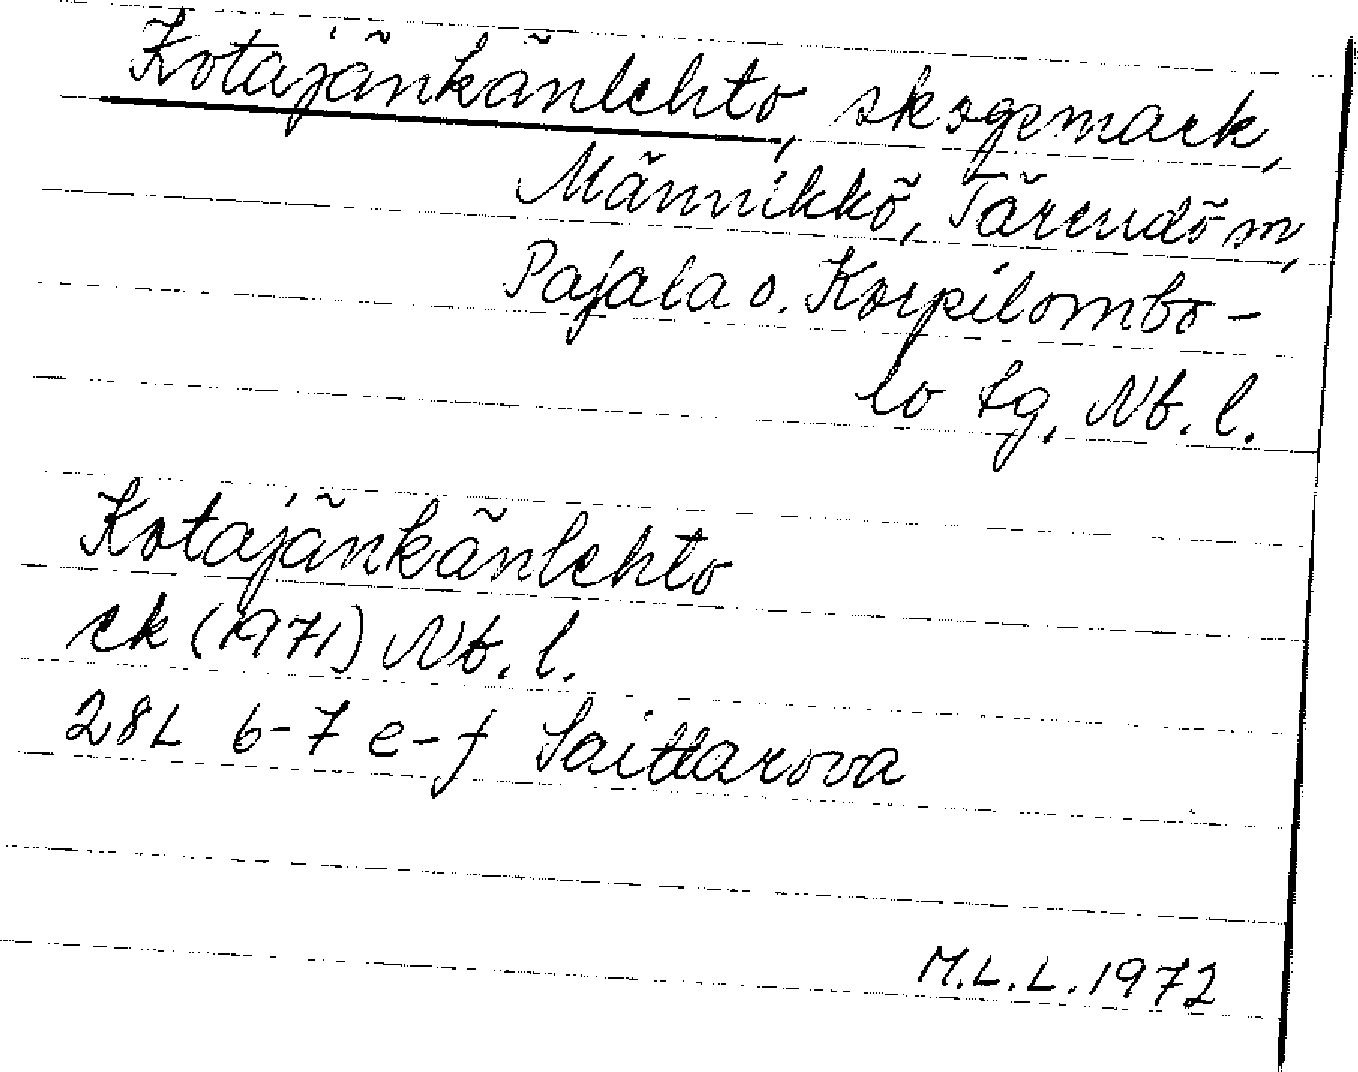 Kotajänkänlehto, skogsmark,
Männikkö, Tärendö sn,
Pajala o. Korpilombo-
lo tg, Nb. l.
Kotajänkänlehto
ek (1971) Nb. l.
28L 6-7 e-f Saittarova
M.L.L. 1972